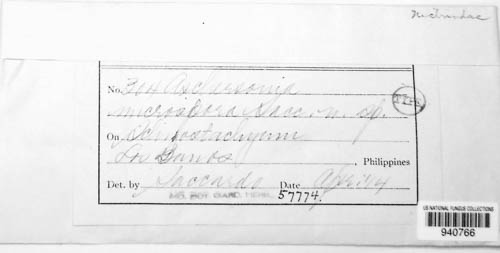 No. Aschersonia
microspora Sacc. n. sp.
TYPE
On Schizostachyum
Los Banos, Philippines
Det. by Saccardo Date
MO. BOT. GARD. HERB.
57774.
US NATIONAL FUNGUS COLLECTIONS
940766